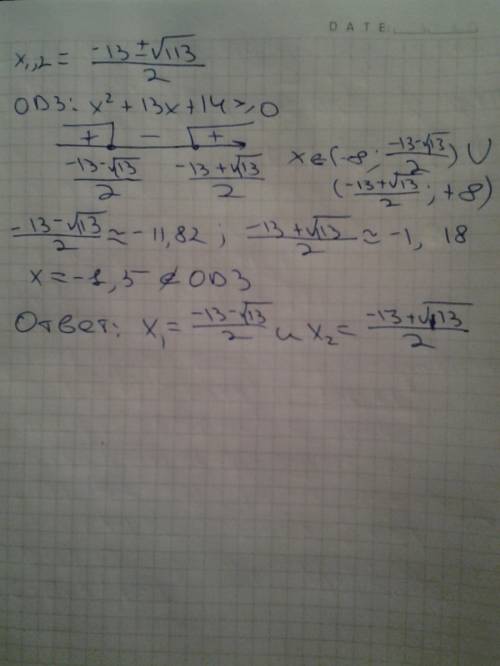 DATE
x₁,₂ = (-13 ± √113)/2
ОДЗ: x² + 13x + 14 ≥ 0
+ − +
(-13-√13)/2 (-13+√13)/2 x ∈ (-∞; (-13-√13)/2) ∪
((-13+√13)/2; +∞)
(-13-√13)/2 ≈ -11,82; (-13+√113)/2 ≈ -1, 18
x = -1,5 ∉ ОДЗ
Ответ: x₁ = (-13-√13)/2 и x₂ = (-13+√113)/2